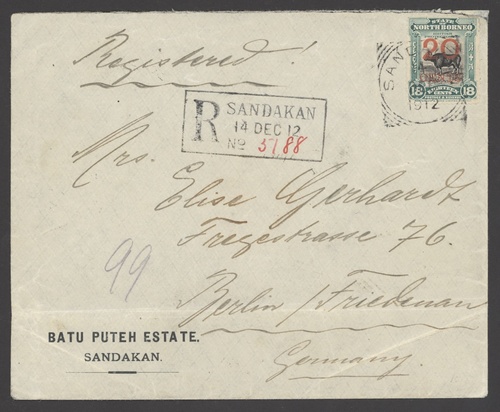 Registered!
STATE OF
NORTH BORNEO
20
CENTS
18
EIGHTEEN
CENTS
18
SAN
1912
R
SANDAKAN
14 DEC 12
No 5188
Mrs.
Elise Gerhardt
Fregestrasse 76.
Berlin/Friedenau
Germany.
99
BATU PUTEH ESTATE.
SANDAKAN.